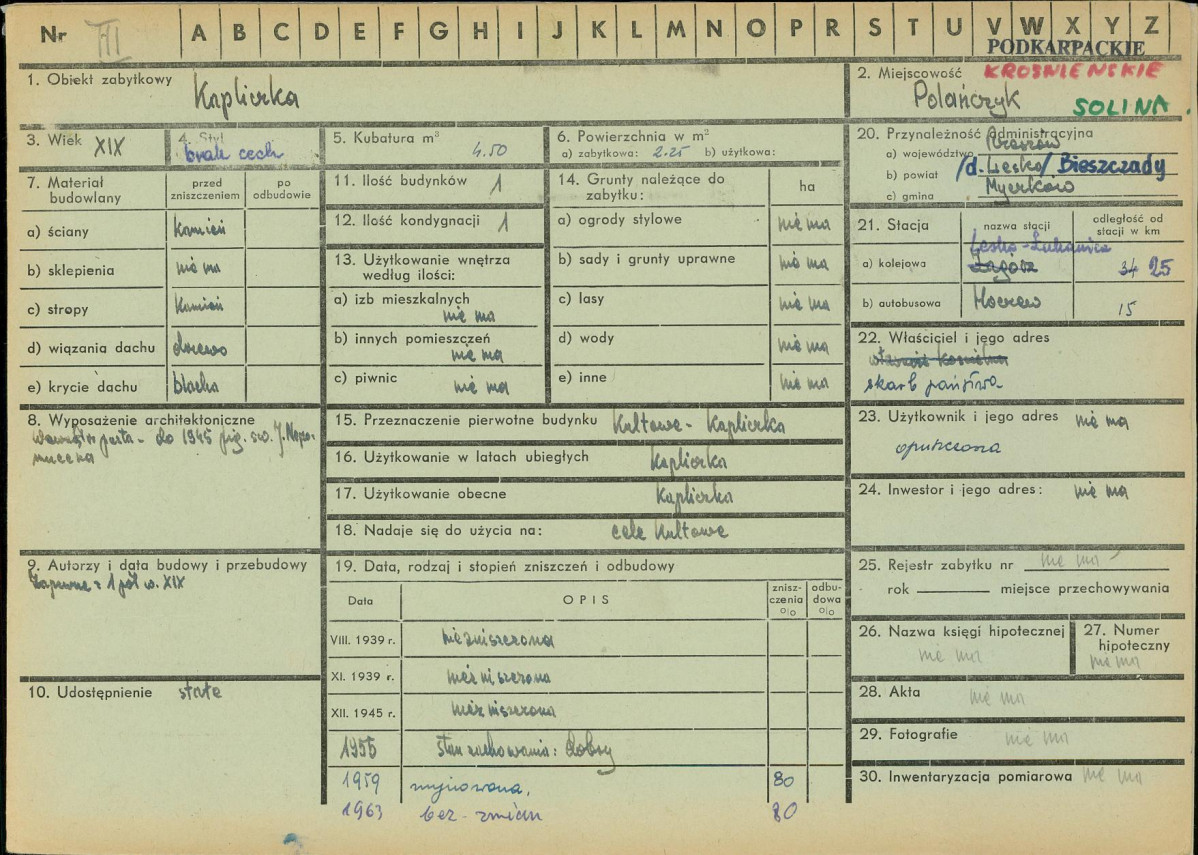 Nr III A B C D E F G H I J K L M N O P R S T U V W X Y Z
PODKARPACKIE
1. Obiekt zabytkowy Kapliczka
2. Miejscowość KROŚNIEŃSKIE
Polańczyk SOLINA
3. Wiek XIX
4. Styl
brak cech
5. Kubatura m³ 4.50
6. Powierzchnia w m²
a) zabytkowa: 2.25 b) użytkowa:
20. Przynależność administracyjna
a) województwo Rzeszów
b) powiat /d. Lesko/ Bieszczady
c) gmina Myczków
7. Materiał budowlany
przed zniszczeniem
po odbudowie
a) ściany kamień
b) sklepienia nie ma
c) stropy kamień
d) wiązania dachu drzewo
e) krycie dachu blacha
11. Ilość budynków 1
12. Ilość kondygnacji 1
13. Użytkowanie wnętrza
według ilości:
a) izb mieszkalnych
nie ma
b) innych pomieszczeń
nie ma
c) piwnic nie ma
14. Grunty należące do
zabytku:
ha
a) ogrody stylowe nie ma
b) sady i grunty uprawne nie ma
c) lasy nie ma
d) wody nie ma
e) inne nie ma
21. Stacja
nazwa stacji
odległość od
stacji w km
Lesko-Łukawica
a) kolejowa Zagórz 34 25
b) autobusowa Hoczew 15
22. Właściciel i jego adres
skarb państwa
8. Wyposażenie architektoniczne
wewnątrz pusta - do 1945 fig. św. J. Nepo-
mucena
15. Przeznaczenie pierwotne budynku Kultowe - Kapliczka
16. Użytkowanie w latach ubiegłych Kapliczka
17. Użytkowanie obecne Kapliczka
18. Nadaje się do użycia na: cele kultowe
23. Użytkownik i jego adres nie ma
opuszczona
24. Inwestor i jego adres: nie ma
9. Autorzy i data budowy i przebudowy
Zapewne z 1 poł w. XIX
10. Udostępnienie stałe
19. Data, rodzaj i stopień zniszczeń i odbudowy
Data
OPIS
znisz-
czenia
%
odbu-
dowa
%
VIII. 1939 r. niezniszczona
XI. 1939 r. niezniszczona
XII. 1945 r. niezniszczona
1955 stan zachowania: dobry
1959 zrujnowana, 80
1963 bez - zmian 80
25. Rejestr zabytku nr nie ma
rok miejsce przechowywania
26. Nazwa księgi hipotecznej
nie ma
27. Numer
hipoteczny
nie ma
28. Akta nie ma
29. Fotografie nie ma
30. Inwentaryzacja pomiarowa nie ma